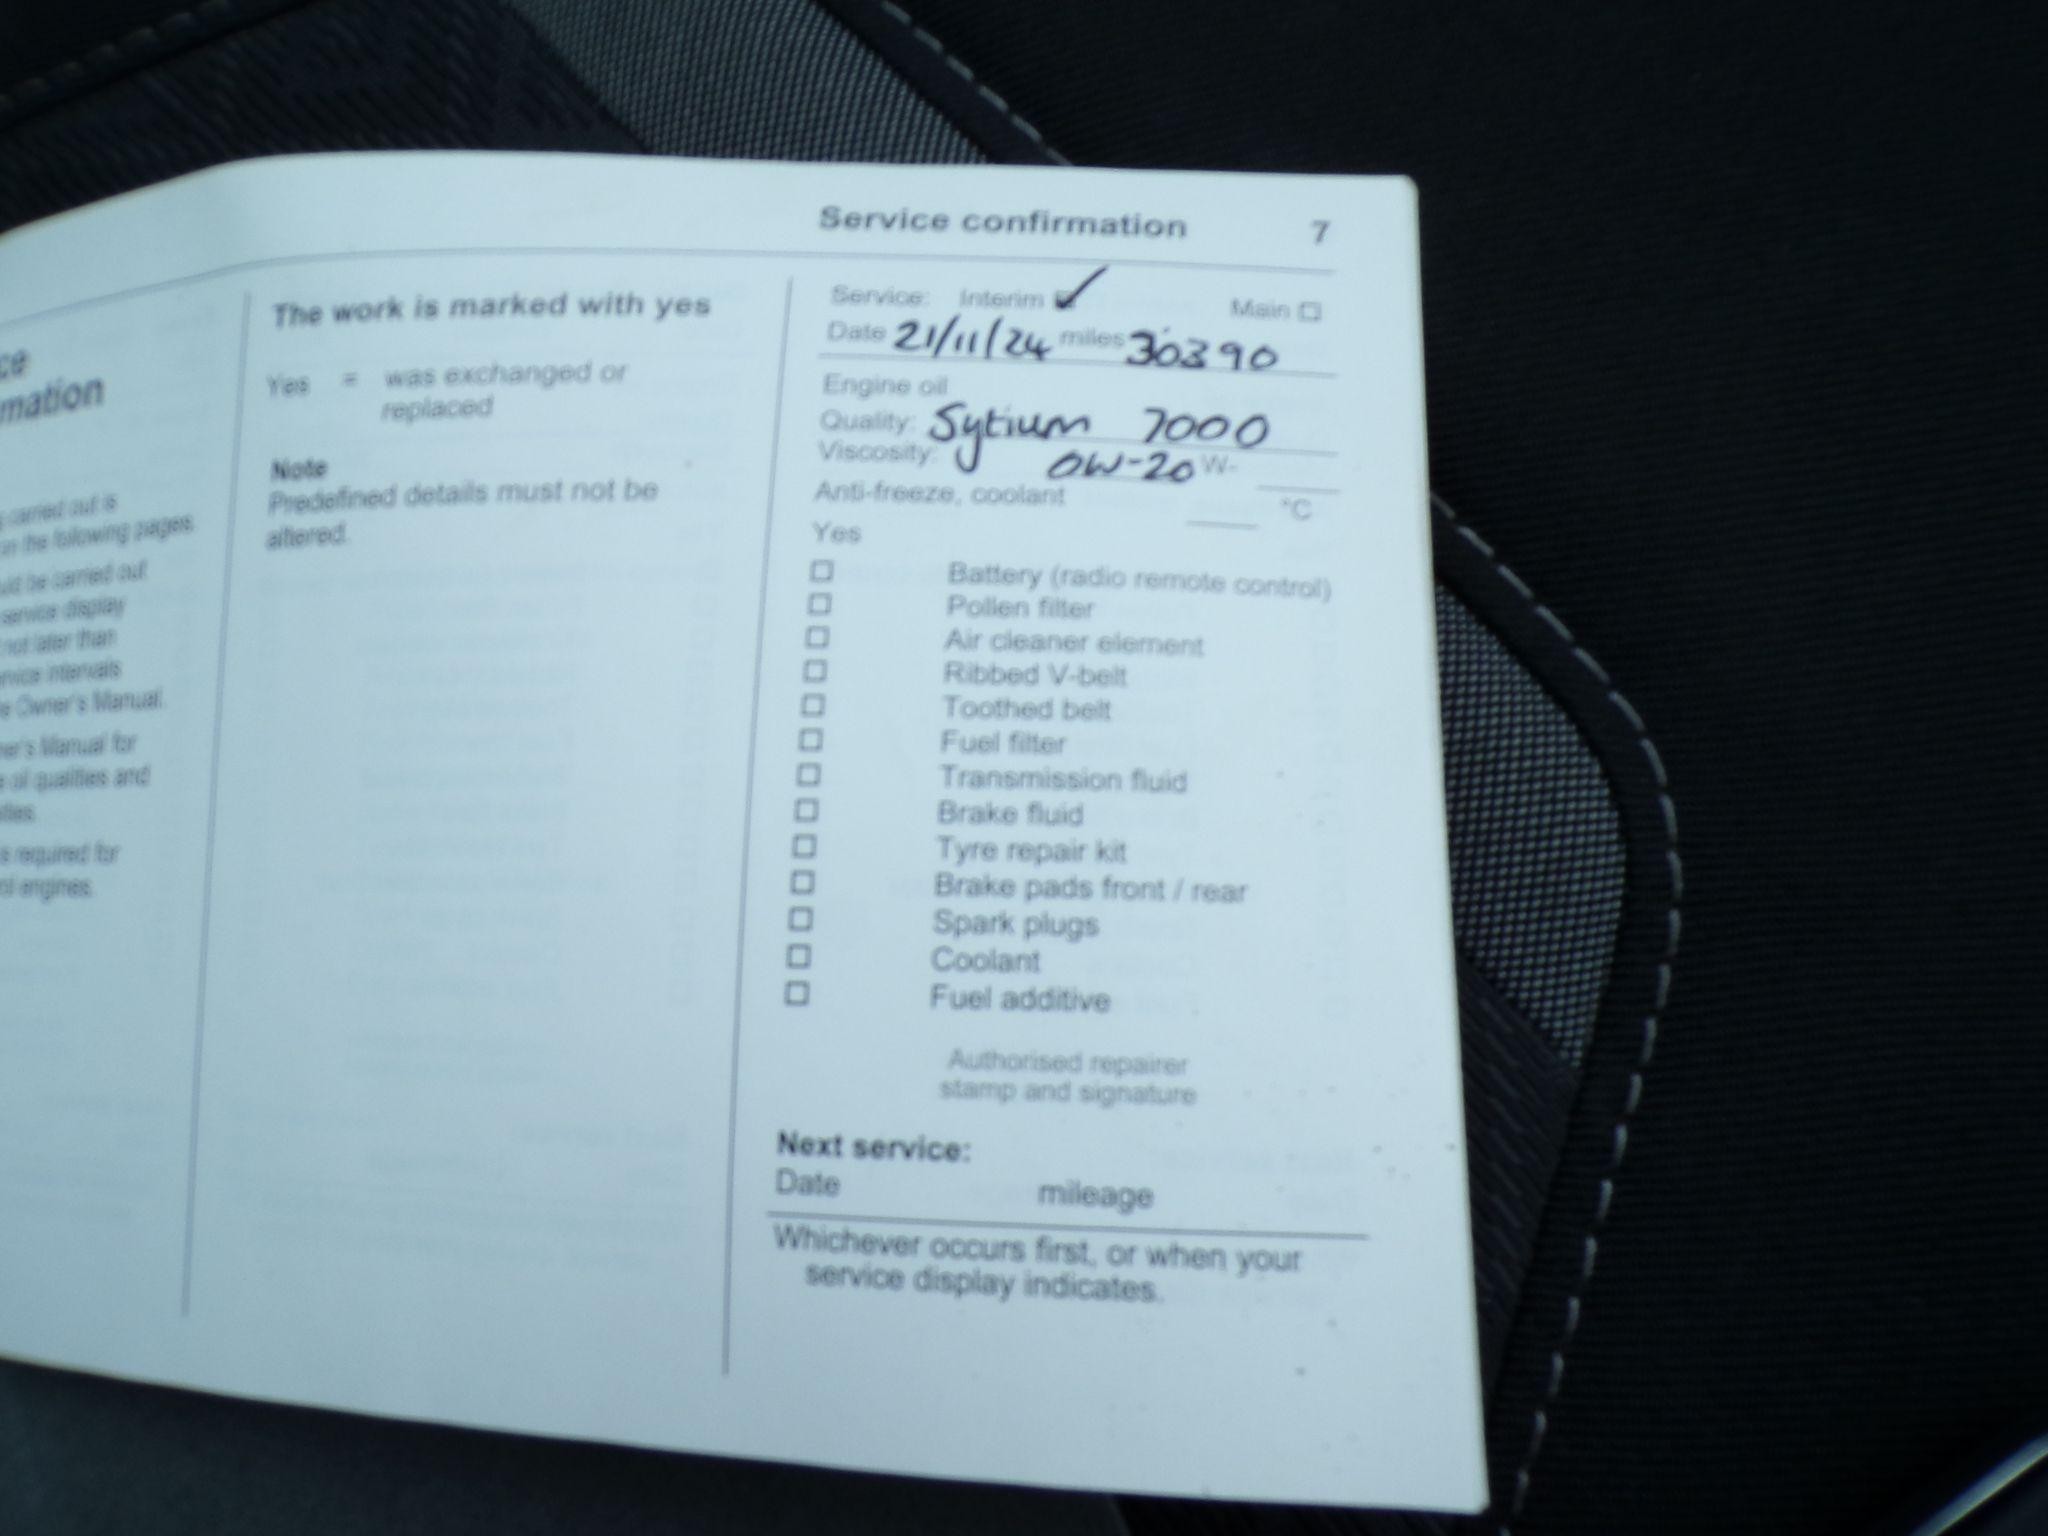 Service confirmation 7
ce
mation
carried out is
on the following pages.
uld be carried out
service display
not later than
rvice intervals
e Owner's Manual.
ner's Manual for
e oil qualities and
ities.
s required for
ol engines.
The work is marked with yes
Yes = was exchanged or
replaced
Note
Predefined details must not be
altered.
Service: Interim ✓ Main □
Date 21/11/24 miles 30390
Engine oil
Quality: Sytium 7000
Viscosity: 0W-20 W-
Anti-freeze, coolant °C
Yes
□ Battery (radio remote control)
□ Pollen filter
□ Air cleaner element
□ Ribbed V-belt
□ Toothed belt
□ Fuel filter
□ Transmission fluid
□ Brake fluid
□ Tyre repair kit
□ Brake pads front / rear
□ Spark plugs
□ Coolant
□ Fuel additive
Authorised repairer
stamp and signature
Next service:
Date mileage
Whichever occurs first, or when your
service display indicates.